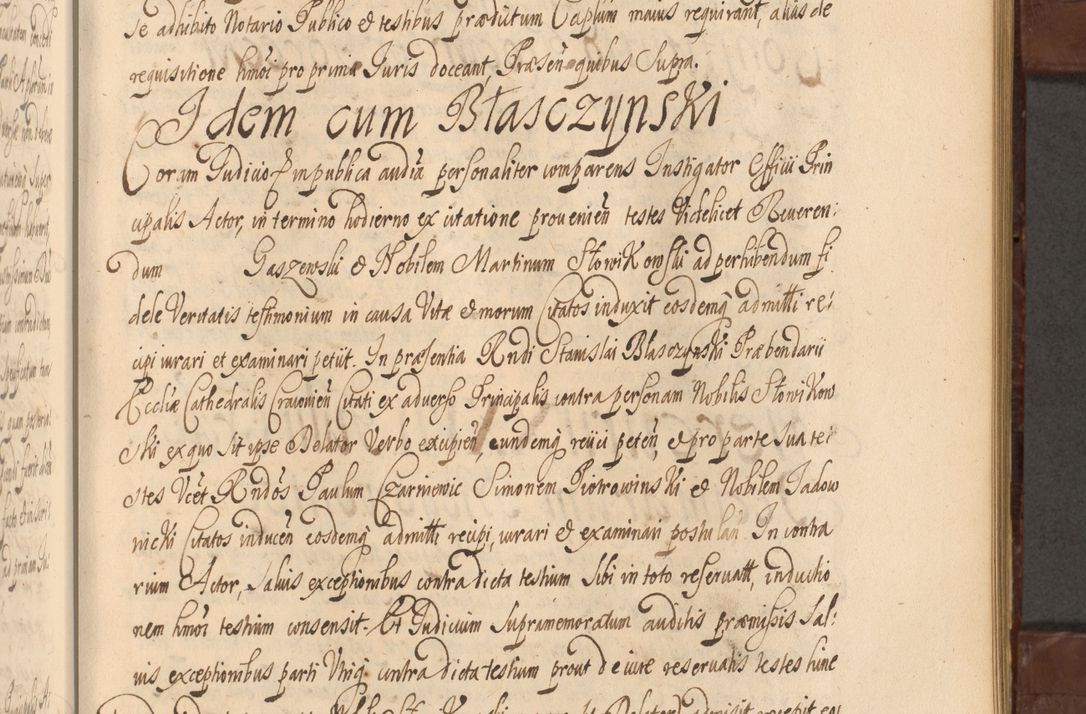 se adhibito Notario Publico et testibus prædictum Caplum maius requirant, alias de
requisitione hmoi pro prima Juris doceant, Præsen quibus Supra.
Idem cum Błasczynski
Coram Judicio et in publica audia personaliter comparens Instigator Officii Prin
cipalis Actor, in termino hodierno ex citatione provenien testes Videlicet Reveren:
dum Gaszewski et Nobilem Martinum Słowikowski ad perhibendum fi
dele Veritatis testimonium in causa Vitæ et morum Citatos induxit eosdemq admitti re:
cipi iurari et examinari petiit. In præsentia Rndi Stanislai Błasczynski Præbendarii
Eccliæ Cathedralis Cracovien Citati ex adverso Principalis contra personam Nobilis Słowikow
ski ex quo sit ipse Delator Verbo excipien, eundemq reiici peten, et pro parte sua te:
stes Vcet Rndos Paulum Czarniewic Simonem Piotrowinski et Nobilem Jadow
nicki Citatos inducen eosdemq admitti recipi, iurari et examinari postulan. In contra
rium Actor, salvis exceptionibus contra dicta testium sibi in toto reservatt, inductio
nem hmoi testium consensit. Et Judicium Supramemoratum auditis præmissis Sal:
vis exceptionibus parti Vtriq contra dicta testium prout de iure reservatis testes hinc